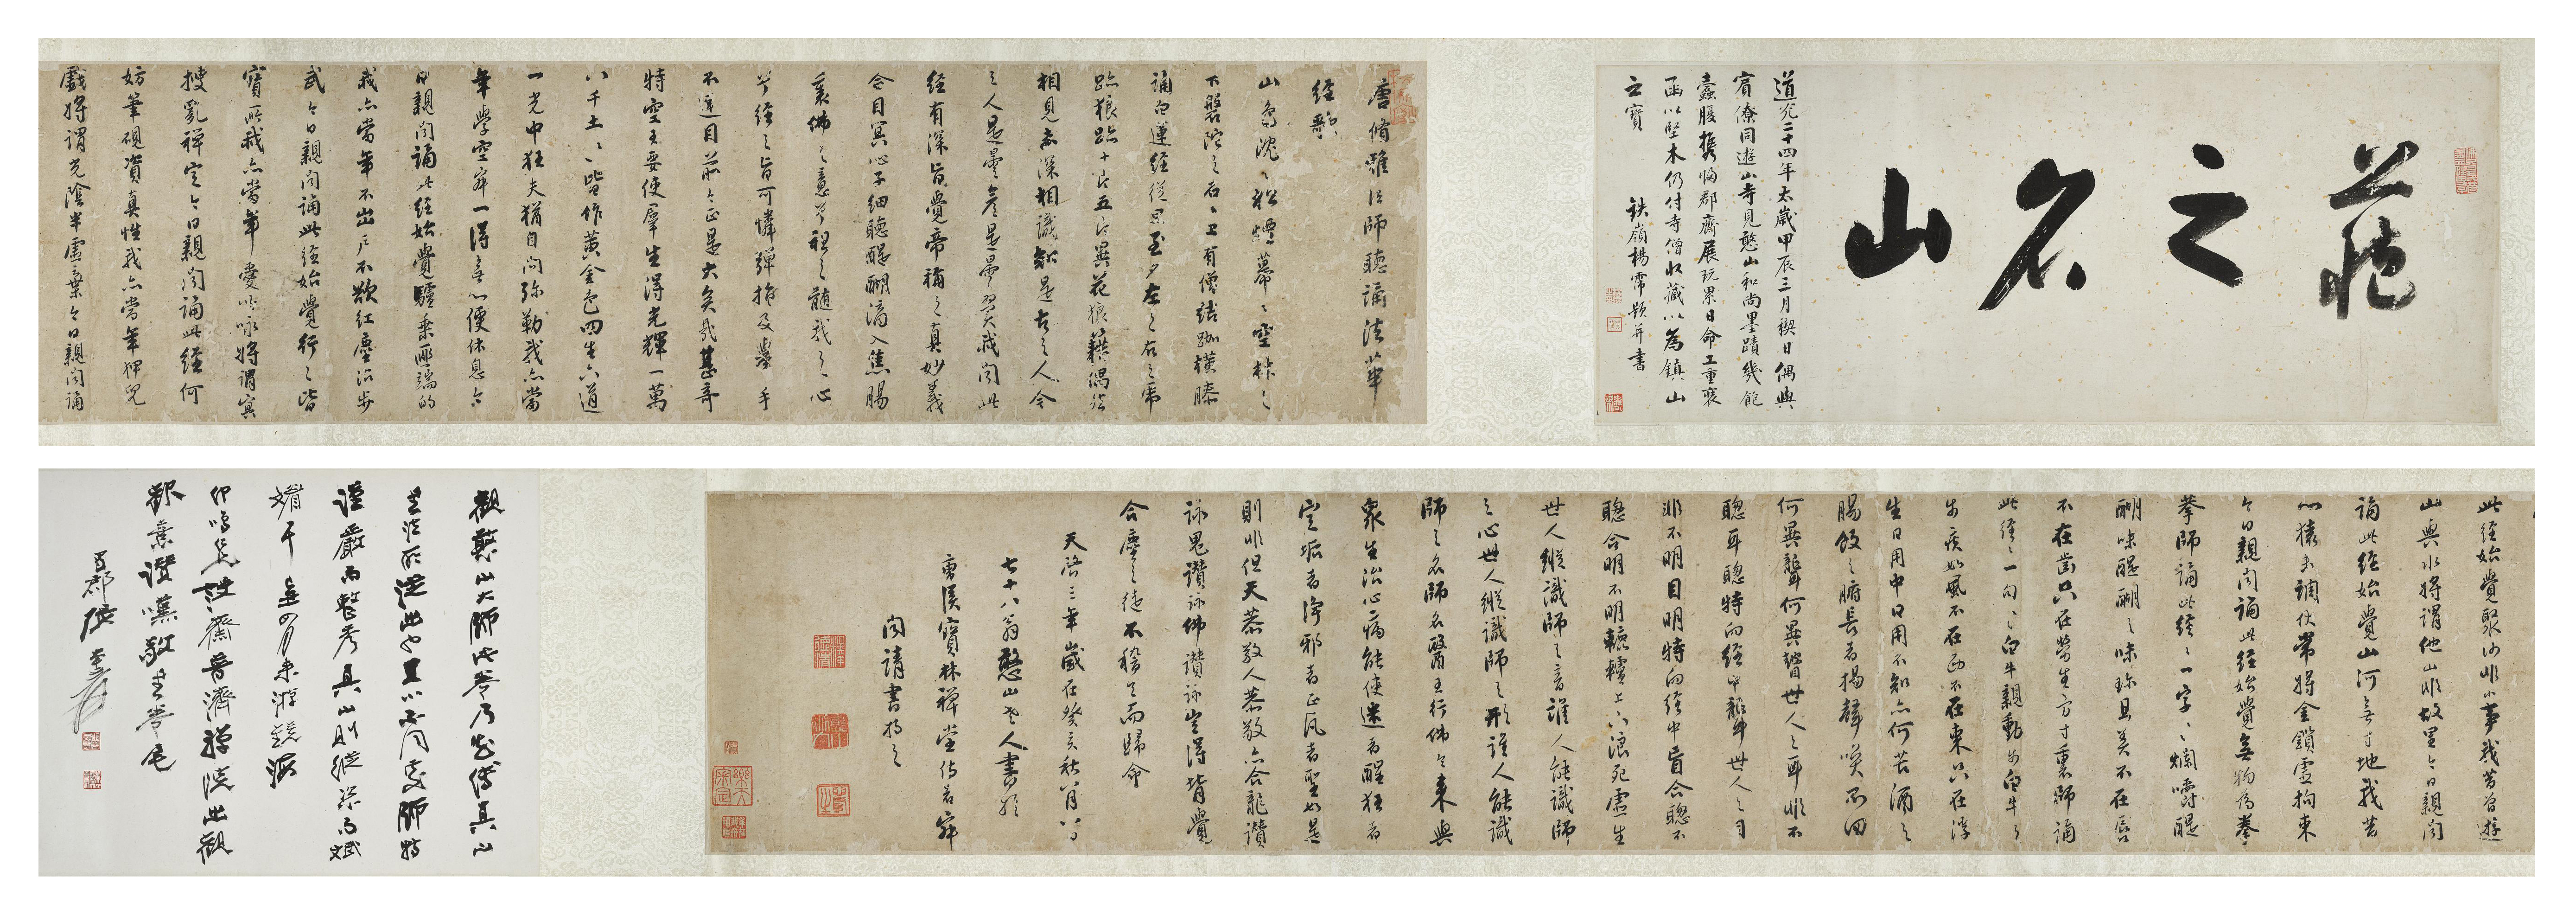 藏之名山
道光二十四年太歲甲辰三月禊日偶與
賓僚同遊山寺見憨山和尚墨蹟幾飽
蠹腹攜歸郡齋展玩累日命工重裝
函以堅木仍付寺僧收藏以為鎮山
之寶 鐵嶺楊霈題并書
唐脩雅法師聽誦法華
經歌
山色沈〻松煙羃〻空林之
下盤陀之石〻上有僧結跏橫膝
誦白蓮經從旦至夕左之右之虎
跡狼跡十片五片異花狼藉偶然
相見未深相識知是古之人今
之人是曇彥是曇翼我聞此
經有深旨覺帝稱之真妙義
合目冥心子細聽醍醐滴入焦腸
裏佛之意兮祖之髓我之心
兮經之旨可憐彈指及舉手
不達目前今正是大矣哉甚奇
特空王要使羣生得光輝一萬
八千土〻皆作黃金色四生六道
一光中狂夫猶自問弥勒我亦當
年學空寂一得無心便休息今
日親聞誦此經始覺驢乘匪端的
我亦當年不出戶不欲紅塵沾步
武今日親聞誦此經始覺行〻皆
寶所我亦當年愛吟咏將謂冥
搜亂禪定今日親聞誦此經何
妨筆硯資真性我亦當年狎兒
戲將謂光陰半虛棄今日親聞誦
此經始覺聚沙非小事我昔曾遊
山與水將謂他山非故里今日親聞
誦此經始覺山河無寸地我昔
心猿未調伏常將金鎖虛拘束
今日親聞誦此經始覺無物為拳〻
拳師誦此經〻一字〻〻爛嚼醍
醐味醍醐之味珍且美不在唇
不在齒只在勞生方寸裏師誦
此經〻一句〻〻白牛親動步白牛之
步疾如風不在西不在東只在浮
生日用中日用不知亦何苦酒之
腸飯之腑長者揚聲喚不回
何異聾何異瞽世人之耳非不
聰耳聰特向經中聾世人之目
非不明目明特向經中盲合聰不
聰合明不明轆轤上下浪死虛生
世人縱識師之音誰人能識師
之心世人縱識師之形誰人能識
師之名師名醫王行佛令來與
眾生治心病能使迷者醒狂者
定垢者淨邪者正凡者聖如是
則非但天恭敬人恭敬亦合龍讚
詠鬼讚詠佛讚詠豈得背覺
合塵之徒不稽首而歸命
天啓三年歲在癸亥秋八月八日
七十八翁憨山老人書於
曹溪寶林禪堂侍者寂
聞請書持之
觀憨山大師此卷乃知傳真山
師特
謹嚴而整秀真山則縱深而
年四月來游
齋普濟禪院出觀
歡喜讚嘆敬書卷尾
蜀郡張大千